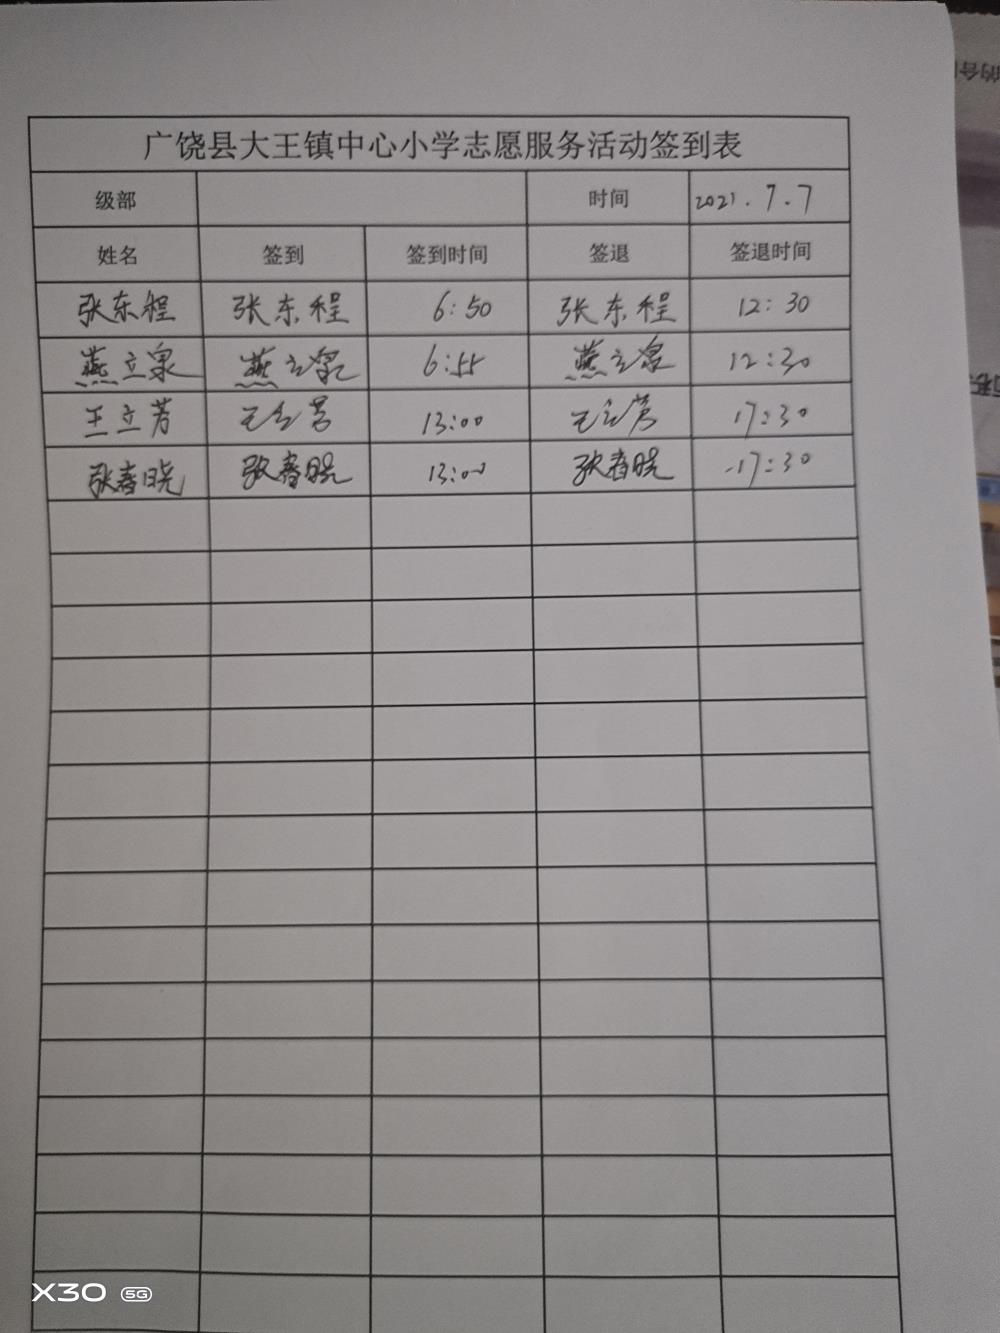 广饶县大王镇中心小学志愿服务活动签到表
级部 时间 2021.7.7
姓名 签到 签到时间 签退 签退时间
张东程 张东程 6:50 张东程 12:30
燕立泉 燕立泉 6:55 燕立泉 12:30
王立芳 王立芳 13:00 王立芳 17:30
张春晓 张春晓 13:00 张春晓 17:30
X30 5G